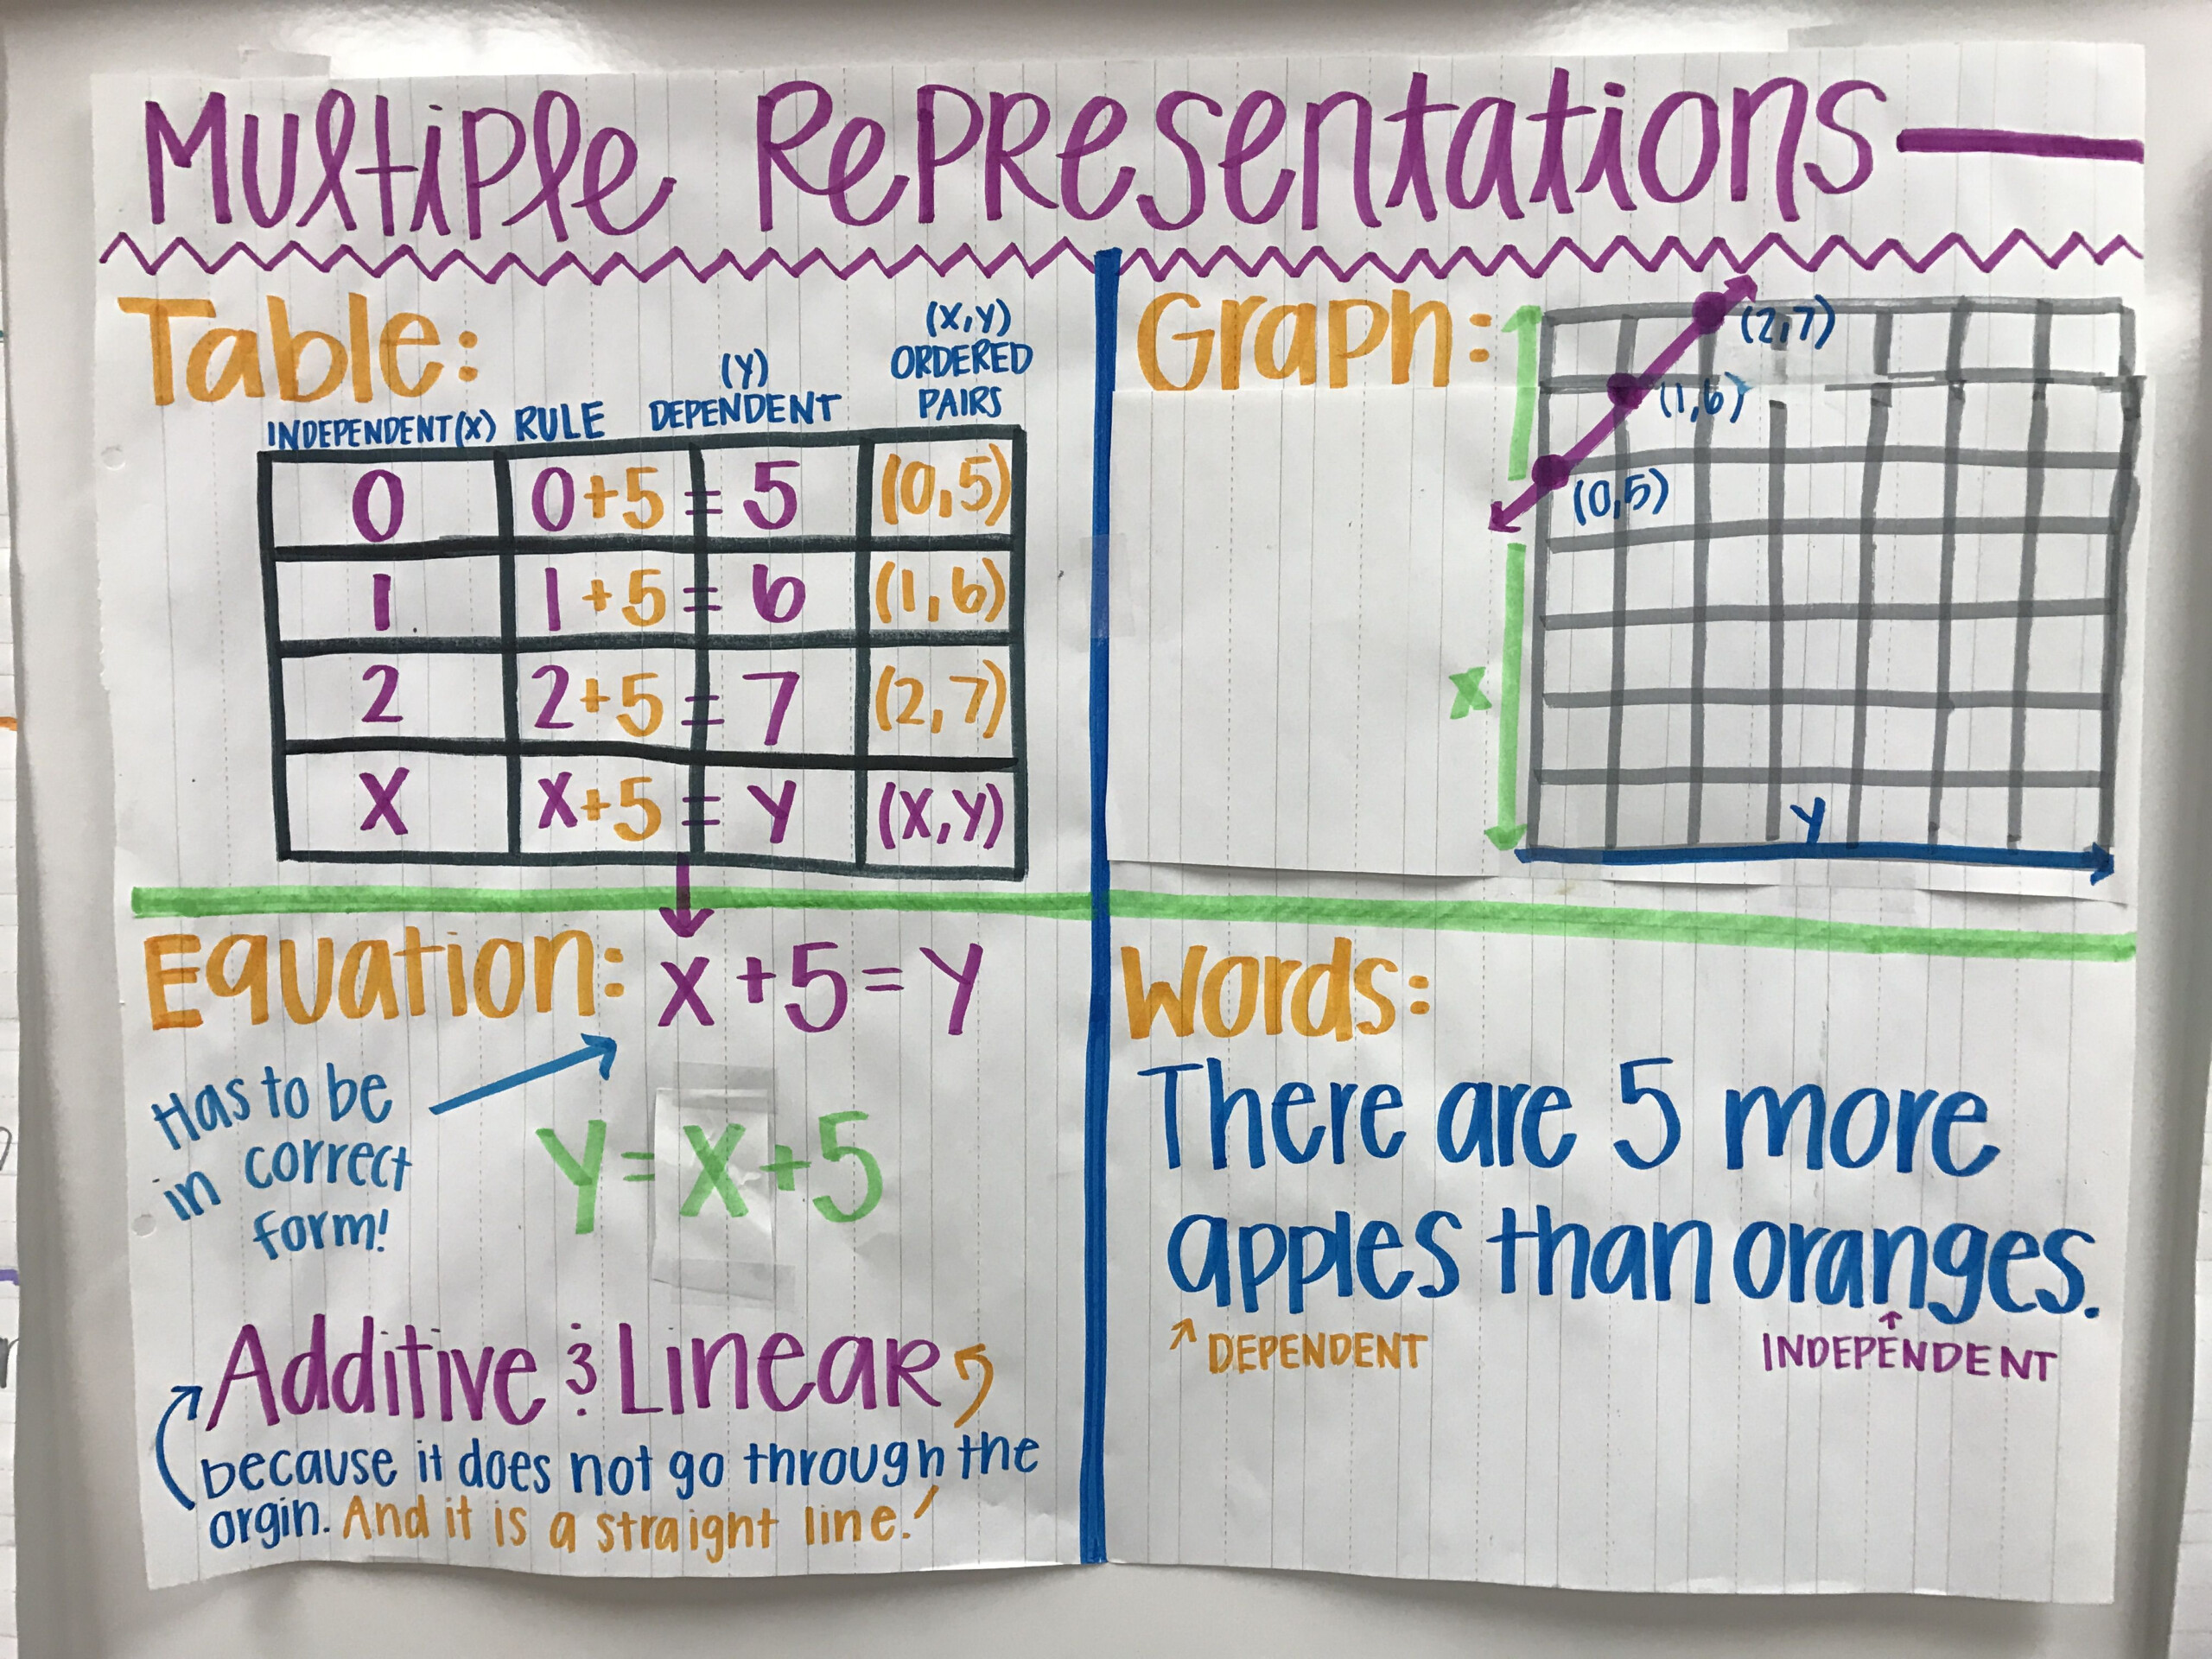 Multiple Representations
Table:
INDEPENDENT(X) RULE (Y) DEPENDENT (X,Y) ORDERED PAIRS
0 0+5 = 5 (0,5)
1 1+5 = 6 (1,6)
2 2+5 = 7 (2,7)
X X+5 = Y (X,Y)
Graph:
(2,7)
(1,6)
(0,5)
X
Y
Equation: X+5=Y
Has to be
in correct
form!
Y=X+5
Additive & Linear
because it does not go through the
orgin. And it is a straight line!
Words:
There are 5 more
apples than oranges.
DEPENDENT INDEPENDENT